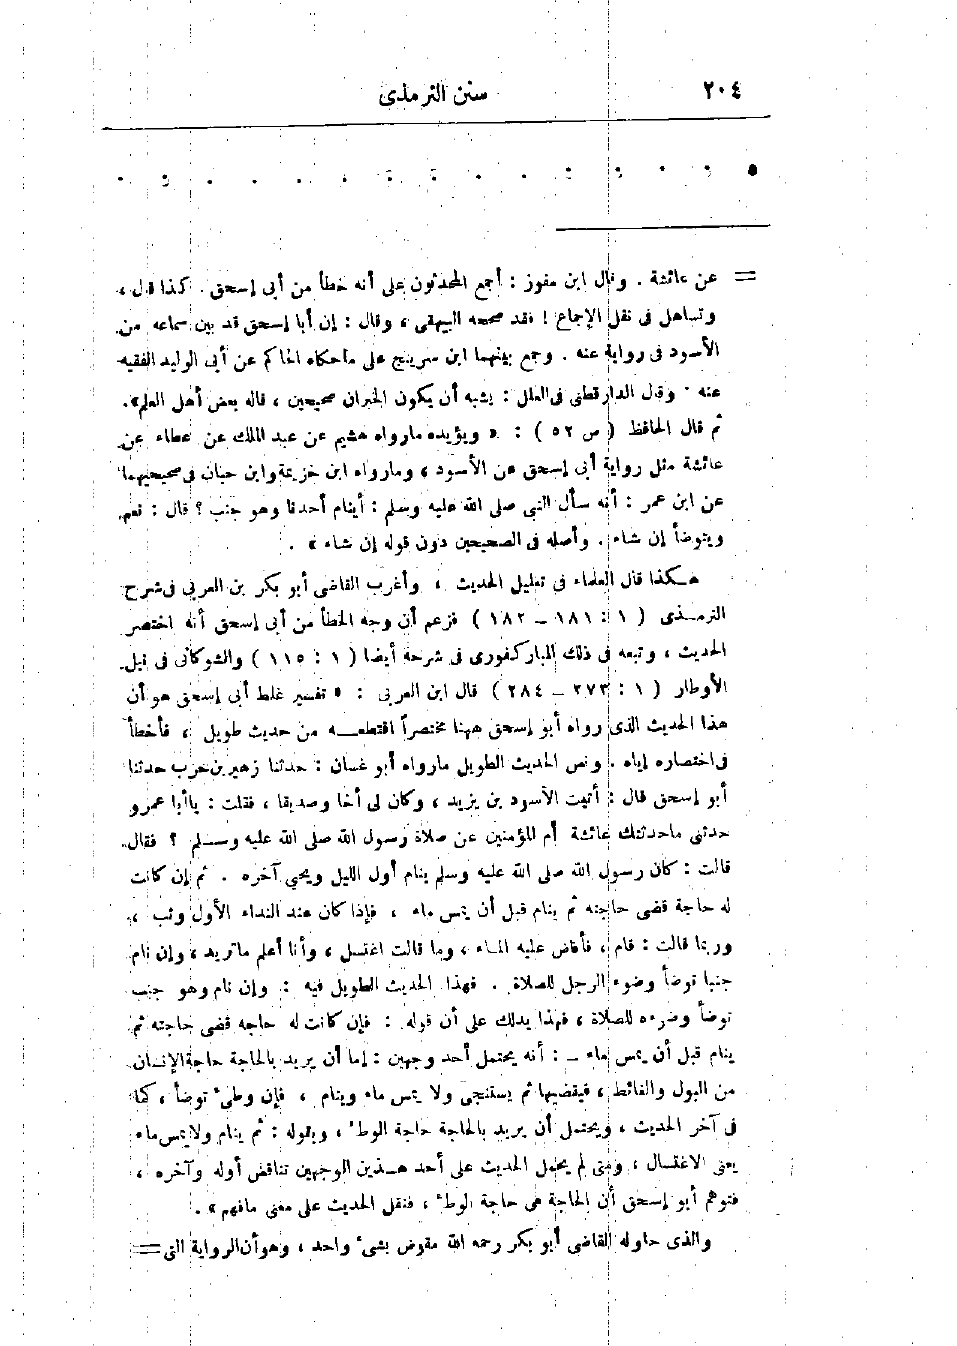 ٢٠٤
سنن الترمذى
= عن عائشة . وقال ابن مفوز : أجمع المحدثون على أنه خطأ من أبى إسحق . كذا قال ،
وتساهل فى نقل الإجماع ! فقد صححه البيهقى ، وقال : إن أبا إسحق قد بين سماعه من
الأسود فى رواية عنه . وجمع بينهما ابن سريج على ماحكاه الحاكم عن أبى الوليد الفقيه
عنه . وقال الدارقطنى فى العلل : يشبه أن يكون الخبران صحيحين ، قاله بعض أهل العلم» .
ثم قال الحافظ ( ص ٥٢ ) : « ويؤيده مارواه هشيم عن عبد الملك عن عطاء عن
عائشة مثل رواية أبى إسحق عن الأسود ، ومارواه ابن خزيمة وابن حبان فى صحيحيهما
عن ابن عمر : أنه سأل النبى صلى الله عليه وسلم : أينام أحدنا وهو جنب ؟ قال : نعم
ويتوضأ إن شاء . وأصله فى الصحيحين دون قوله إن شاء » .
هكذا قال العلماء فى تعليل الحديث ، وأغرب القاضى أبو بكر بن العربى فى شرح
الترمذى ( ١ : ١٨١ – ١٨٢ ) فزعم أن وجه الخطأ من أبى إسحق أنه اختصر
الحديث ، وتبعه فى ذلك المباركفورى فى شرحه أيضا ( ١ : ١١٥ ) والشوكانى فى نيل
الأوطار ( ١ : ٢٧٣ – ٢٨٤ ) قال ابن العربى : « تفسير غلط أبى إسحق هو أن
هذا الحديث الذى رواه أبو إسحق ههنا مختصراً اقتطعه من حديث طويل ، فأخطأ
فى اختصاره إياه . ونص الحديث الطويل مارواه أبو غسان : حدثنا زهير بن حرب حدثنا
أبو إسحق قال : أتيت الأسود بن يزيد ، وكان لى أخا وصديقا ، فقلت : ياأبا عمرو
حدثنى ماحدثتك عائشة أم المؤمنين عن صلاة رسول الله صلى الله عليه وسلم ؟ فقال
قالت : كان رسول الله صلى الله عليه وسلم ينام أول الليل ويحيى آخره . ثم إن كانت
له حاجة قضى حاجته ثم ينام قبل أن يمس ماء ، فإذا كان عند النداء الأول وثب ،
وربما قالت : قام ، فأفاض عليه الماء ، وما قالت اغتسل ، وأنا أعلم ماتريد ، وإن نام
جنبا توضأ وضوء الرجل للصلاة . فهذا الحديث الطويل فيه : وإن نام وهو جنب
توضأ وضوءه للصلاة ، فهذا يدلك على أن قوله : فإن كانت له حاجه قضى حاجته ثم
ينام قبل أن يمس ماء – : أنه يحتمل أحد وجهين : إما أن يريد بالحاجة حاجة الإنسان
من البول والغائط ، فيقضيها ثم يستنجى ولا يمس ماء وينام ، فإن وطئ توضأ ، كما
فى آخر الحديث ، ويحتمل أن يريد بالحاجة حاجة الوطء ، وبقوله : ثم ينام ولا يمس ماء
يعنى الاغتسال ، ومتى لم يحمل الحديث على أحد هذين الوجهين تناقض أوله وآخره ،
فتوهم أبو إسحق أن الحاجة هى حاجة الوطء ، فنقل الحديث على معنى مافهم » .
والذى حاوله القاضى أبو بكر رحمه الله منقوض بشىء واحد ، وهو أن الرواية التى =